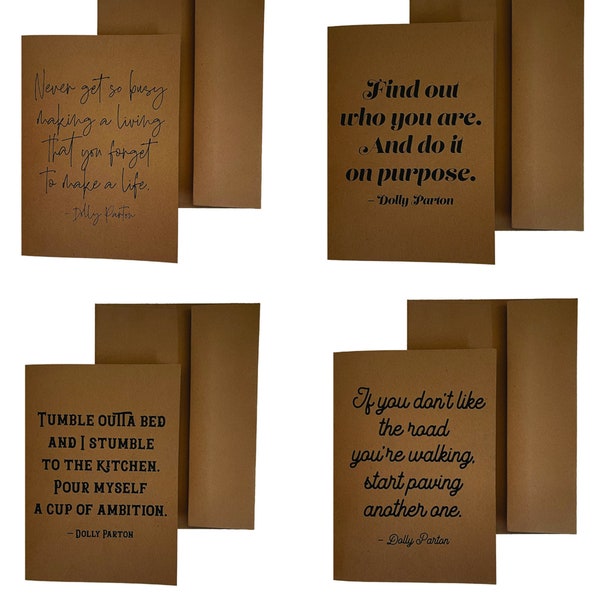 Never get so busy
making a living
that you forget
to make a life.
- Dolly Parton
Find out
who you are.
And do it
on purpose.
– Dolly Parton
TUMBLE OUTTA BED
AND I STUMBLE
TO THE KITCHEN.
POUR MYSELF
A CUP OF AMBITION.
– DOLLY PARTON
If you don't like
the road
you're walking,
start paving
another one.
– Dolly Parton